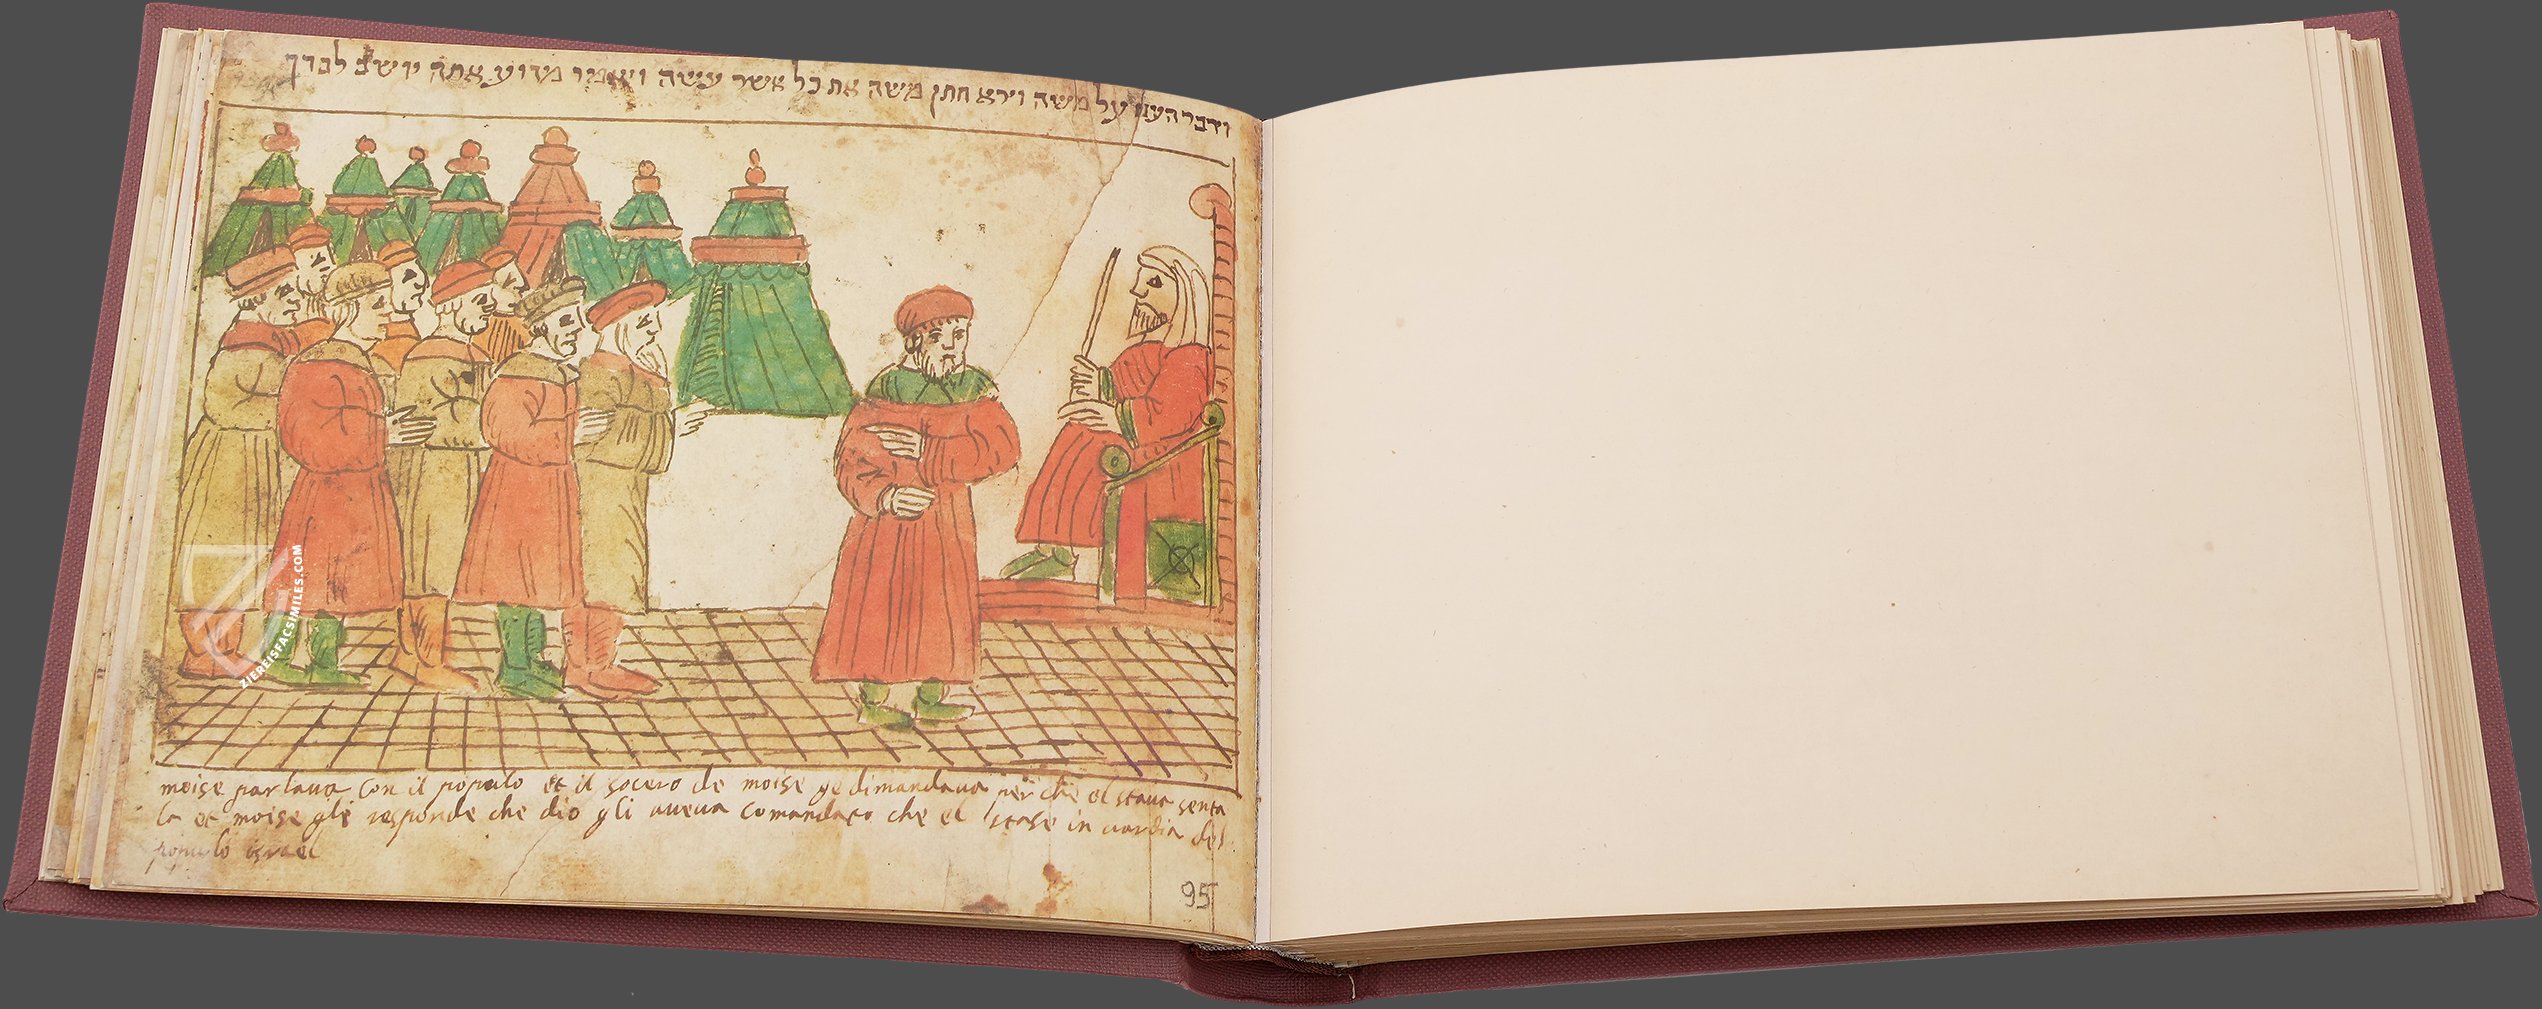 ודבר העם על משה וירא חתן משה את כל אשר עשה ויאמר מדוע אתה יושב לבדך
moise parlava con il populo et il socero de moise ge dimandava perche el stava senta
to et moise gli responde che dio gli aveva comandato che el stase in vardia del
populo israel
95
ZIEREISFACSIMILES.COM